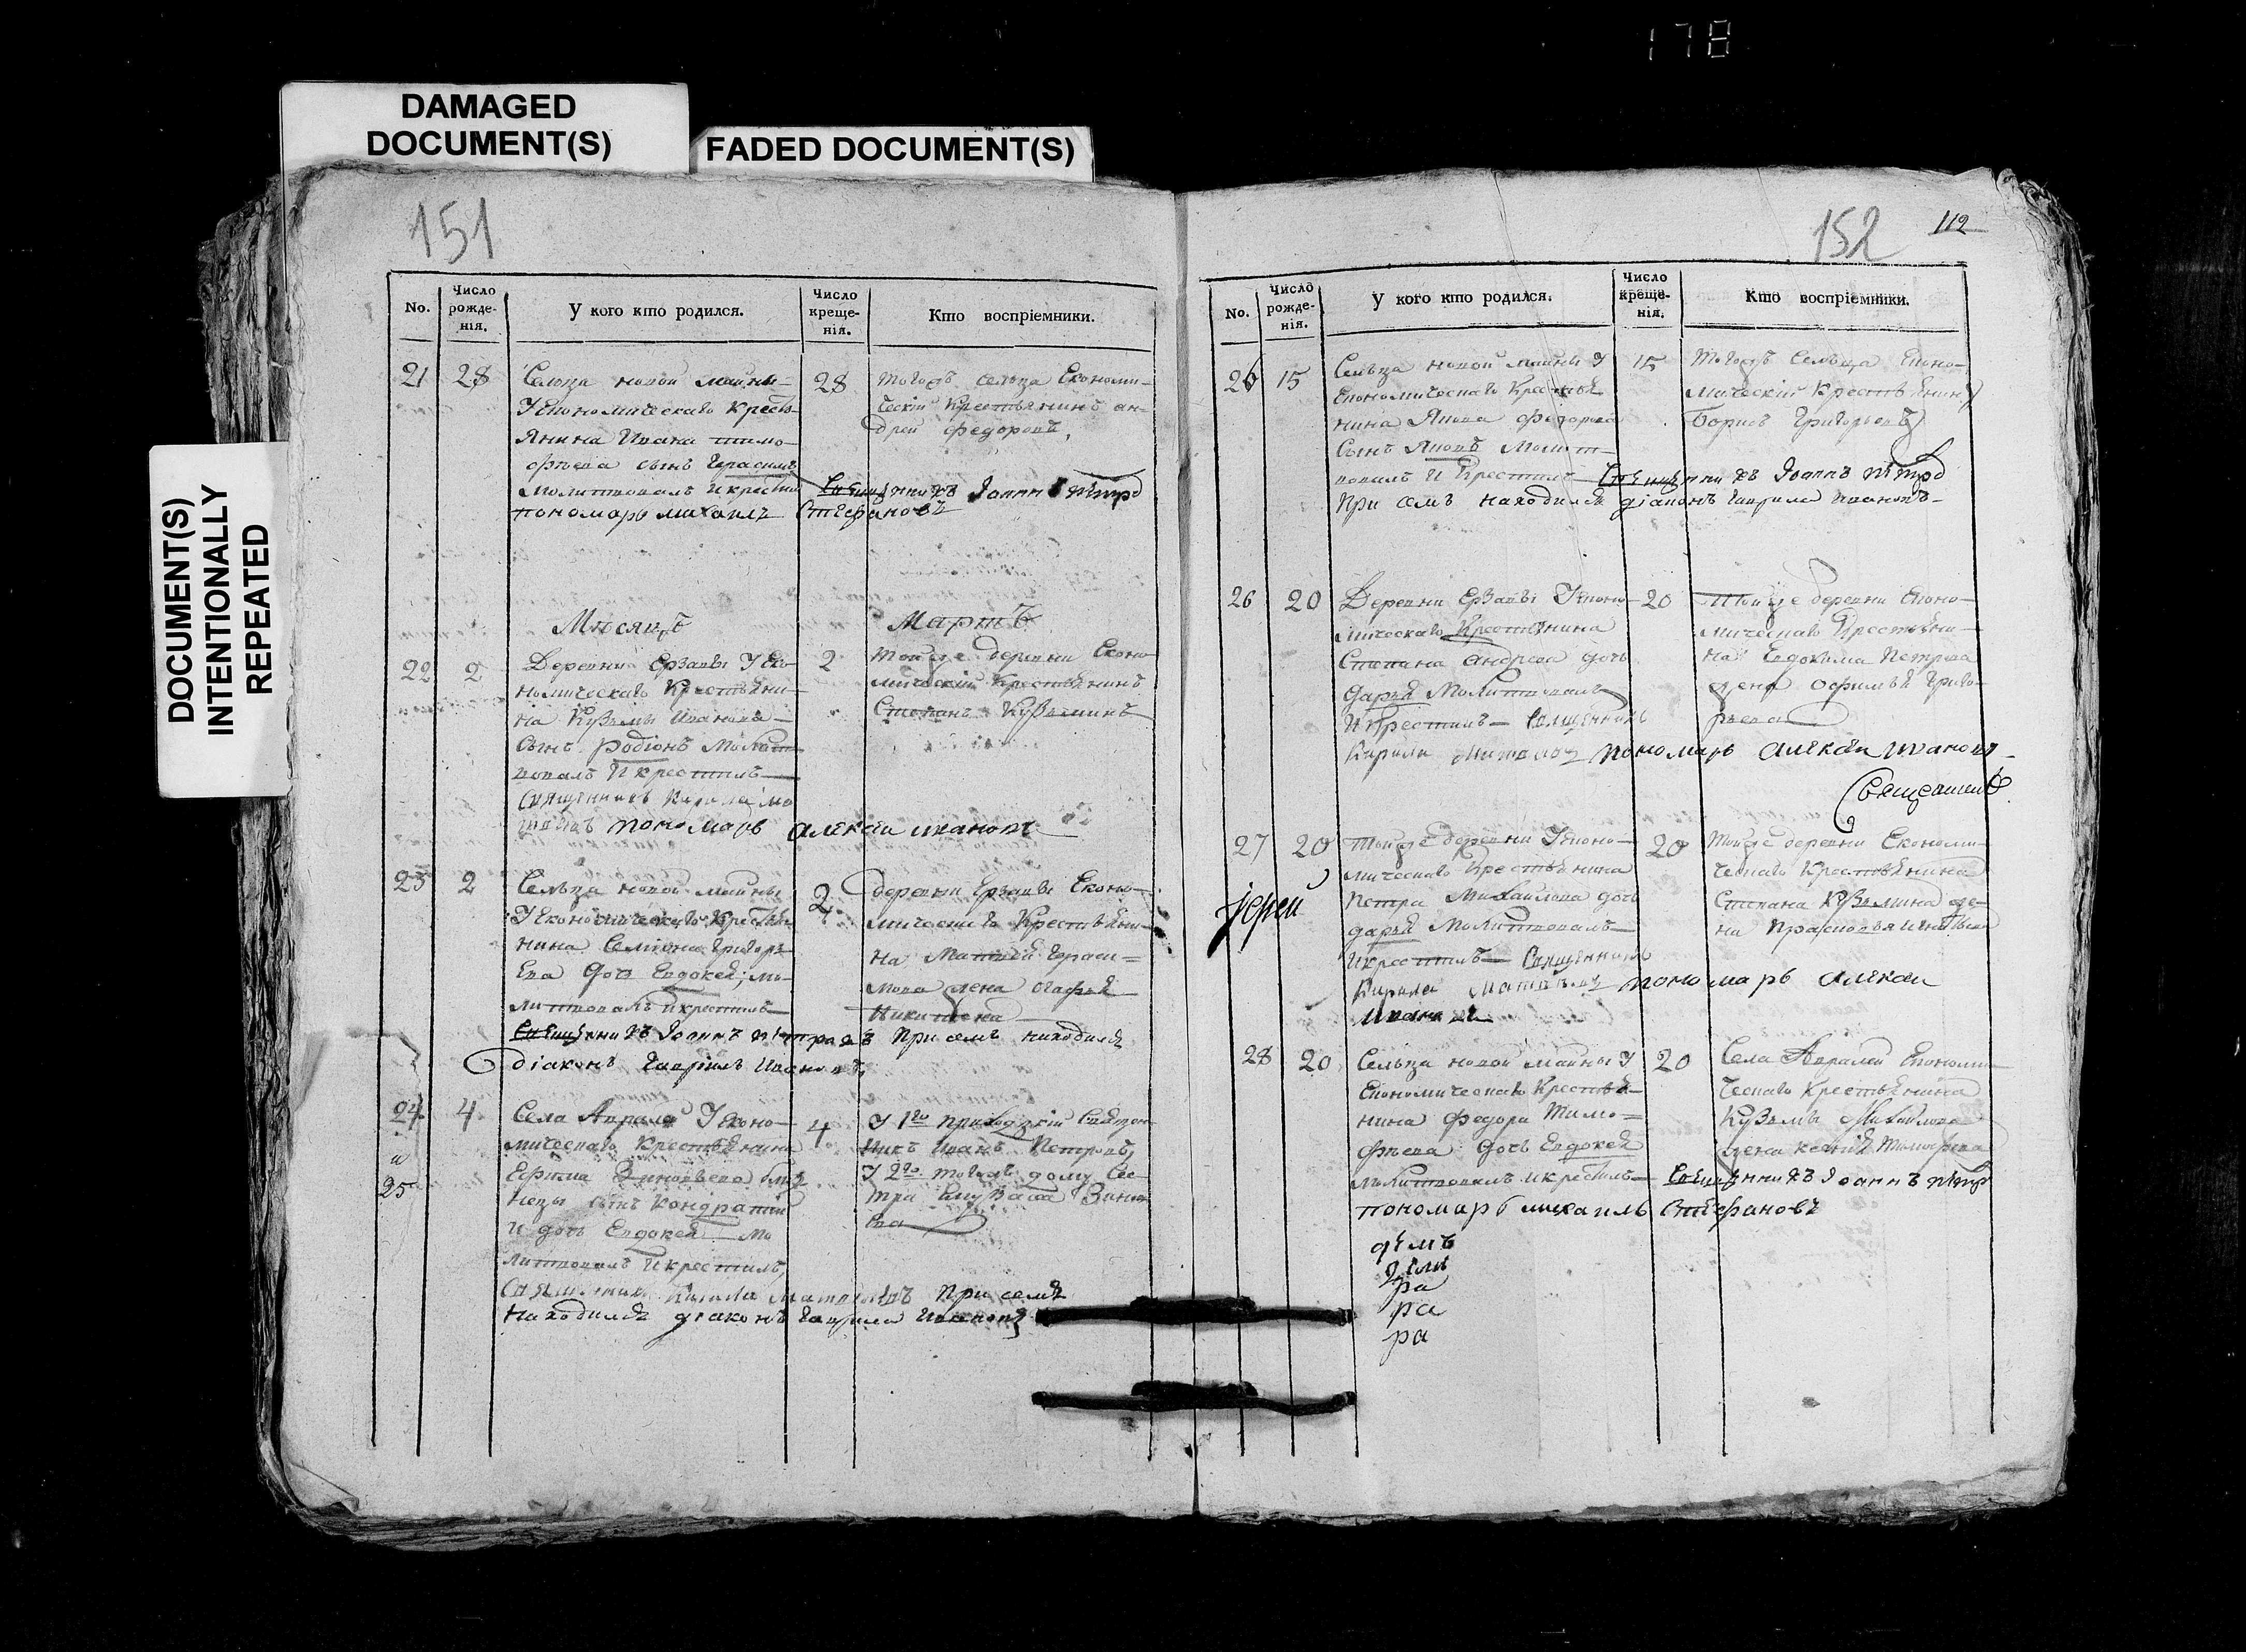 178
DAMAGED
DOCUMENT(S)
FADED DOCUMENT(S)
DOCUMENT(S)
INTENTIONALLY
REPEATED
151
No.
Число рожде-нія.
У кого кто родился.
Число креще-нія.
Кто воспріемники.
21 28
Сельца новой майны
У Економическаго кресть-
янина Ивана тимо-
фѣева сынъ Герасимъ
молитвовалъ и крестил Священникъ Іоаннъ петро
пономарь михаилъ Стефановъ
28
тогожъ сельца Економи-
ческій крестьянинъ ан-
дрей федоровъ
Мѣсяцъ Мартъ
22 2
Деревни Ерзовы У Еко-
номическаго Крестьяни-
на Кузьмы Иванова
сынъ родіонъ молит-
вовалъ И крестилъ
священникъ Кирила
пономарь алексѣи иванов
2
тойже деревни Еконо-
мическій крестьянинъ
Степанъ Кузьминъ
23 2
Сельца новой майны
У Економическаго Крестья-
нина Семіона Григорь-
Ева дочь Евдокея; мо-
литвовалъ и крестилъ
Священникъ Іоаннъ петровъ при семъ находился
діаконъ Гавріилъ Ивановъ
2
деревни Ерзовы Еконо-
мическаго Крестьяни-
на Матвѣя Гераси-
мова жена Огафья
Никитина
24 4
и
25
Села Аврали У Еконо-
мическаго Крестьянина
Ефима Зиновьева близ
нецы сынъ Кондратий
и дочь Евдокея мо
литвовалъ И крестилъ
священникъ Кирила матвѣевъ при семъ
находился діаконъ Гаврила Ивановъ
4
У 1го приходскій Священ
никъ Иванъ Петровъ
У 2го тогожъ дому Се-
стра Зинов
Ева
152 112
No.
Число рожде-нія.
У кого кто родился.
Число креще-нія.
Кто воспріемники.
26 15
Сельца новой майны У
Економическаго Крестья
нина Якова федорова
Сынъ Яковъ Молит-
вовалъ И Крестилъ Священникъ Іоаннъ петро
При семъ находился діаконъ Гаврила Ивановъ
15
тогожъ Сельца Еконо-
мическій Крестьянин
Борисъ Григорьевъ
26 20
Деревни Ерзовы У Еконо-
мическаго Крестьянина
Степана Андреева дочь
дарья Молитвовалъ
И Крестилъ Священникъ
Кирила пономарь алексѣи иванов
20
тойже деревни Еконо-
мическаго Крестьяни-
на Евдокима Петрова
жена Офимья Григо-
рьева
Священникъ
27 20
тойже деревни У Еконо-
мическаго Крестьянина
Петра Михайлова дочь
дарья Молитвовалъ
и крестилъ Священникъ
Кирила Матвѣевъ пономарь алексѣи
Иванов
20
тойже деревни Економи-
ческаго Крестьянина
Степана Кузьмина же-
на
Іерей
28 20
Сельца новой майны У
Економическаго Крестья-
нина Федора Тимо-
фѣева дочь Евдокея
молитвовалъ и крестилъ Священникъ Іоаннъ петр
пономарь михаилъ Стефановъ
20
Села Авралей Економи-
ческаго Крестьянина
Кузьмы Михайлова
жена Тимофѣева
ра
ра
ра